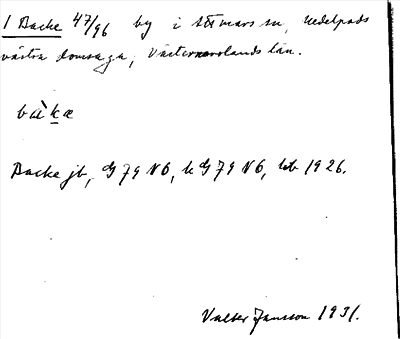 1 Backe 47/96 by i Attmars sn, Medelpads
västra domsaga, Västernorrlands län.
bàkæ
Backe jb, G 79 NÖ, k G 79 NÖ, kb 1926.
Valter Jansson 1931.